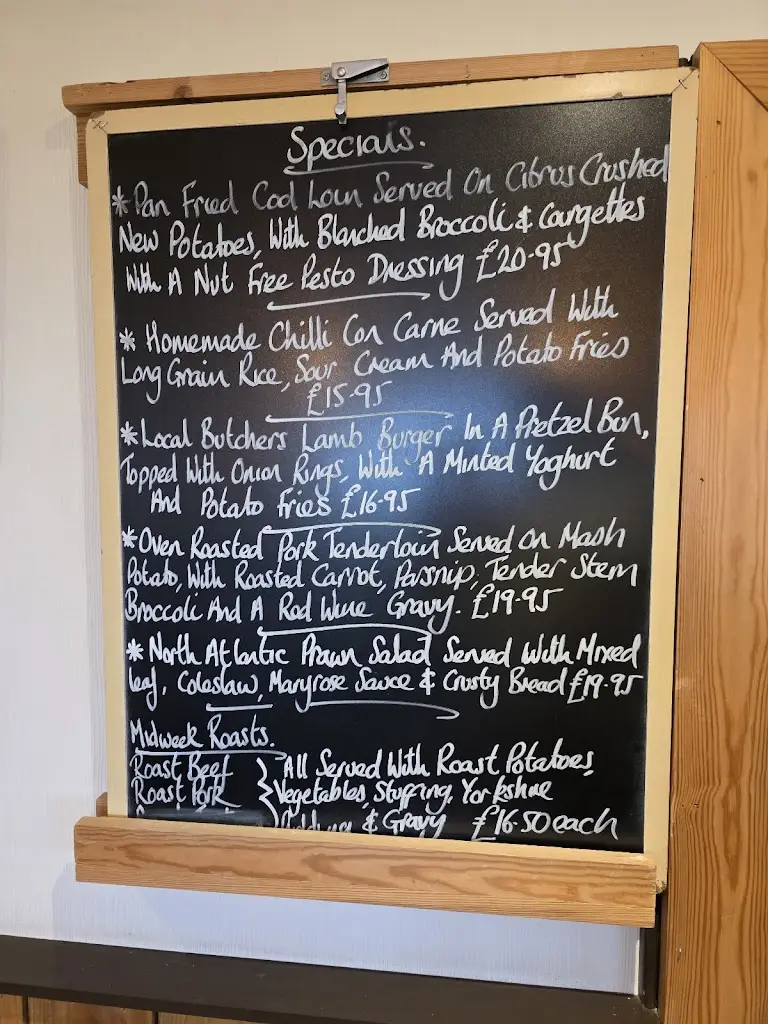 Specials.
*Pan Fried Cod Loin Served On Citrus Crushed
New Potatoes, With Blanched Broccoli & Courgettes
With A Nut Free Pesto Dressing £20.95
* Homemade Chilli Con Carne Served With
Long Grain Rice, Sour Cream And Potato Fries
£15.95
*Local Butchers Lamb Burger In A Pretzel Bun,
Topped With Onion Rings, With A Minted Yoghurt
And Potato Fries £16.95
*Oven Roasted Pork Tenderloin Served on Mash
Potato, With Roasted Carrot, Parsnip, Tender Stem
Broccoli And A Red Wine Gravy. £19.95
*North Atlantic Prawn Salad Served With Mixed
leaf, Coleslaw, Maryrose Sauce & Crusty Bread £19.95
Midweek Roasts.
Roast Beef All Served With Roast Potatoes,
Roast Pork Vegetables, Stuffing, Yorkshire
& Gravy £16.50 each